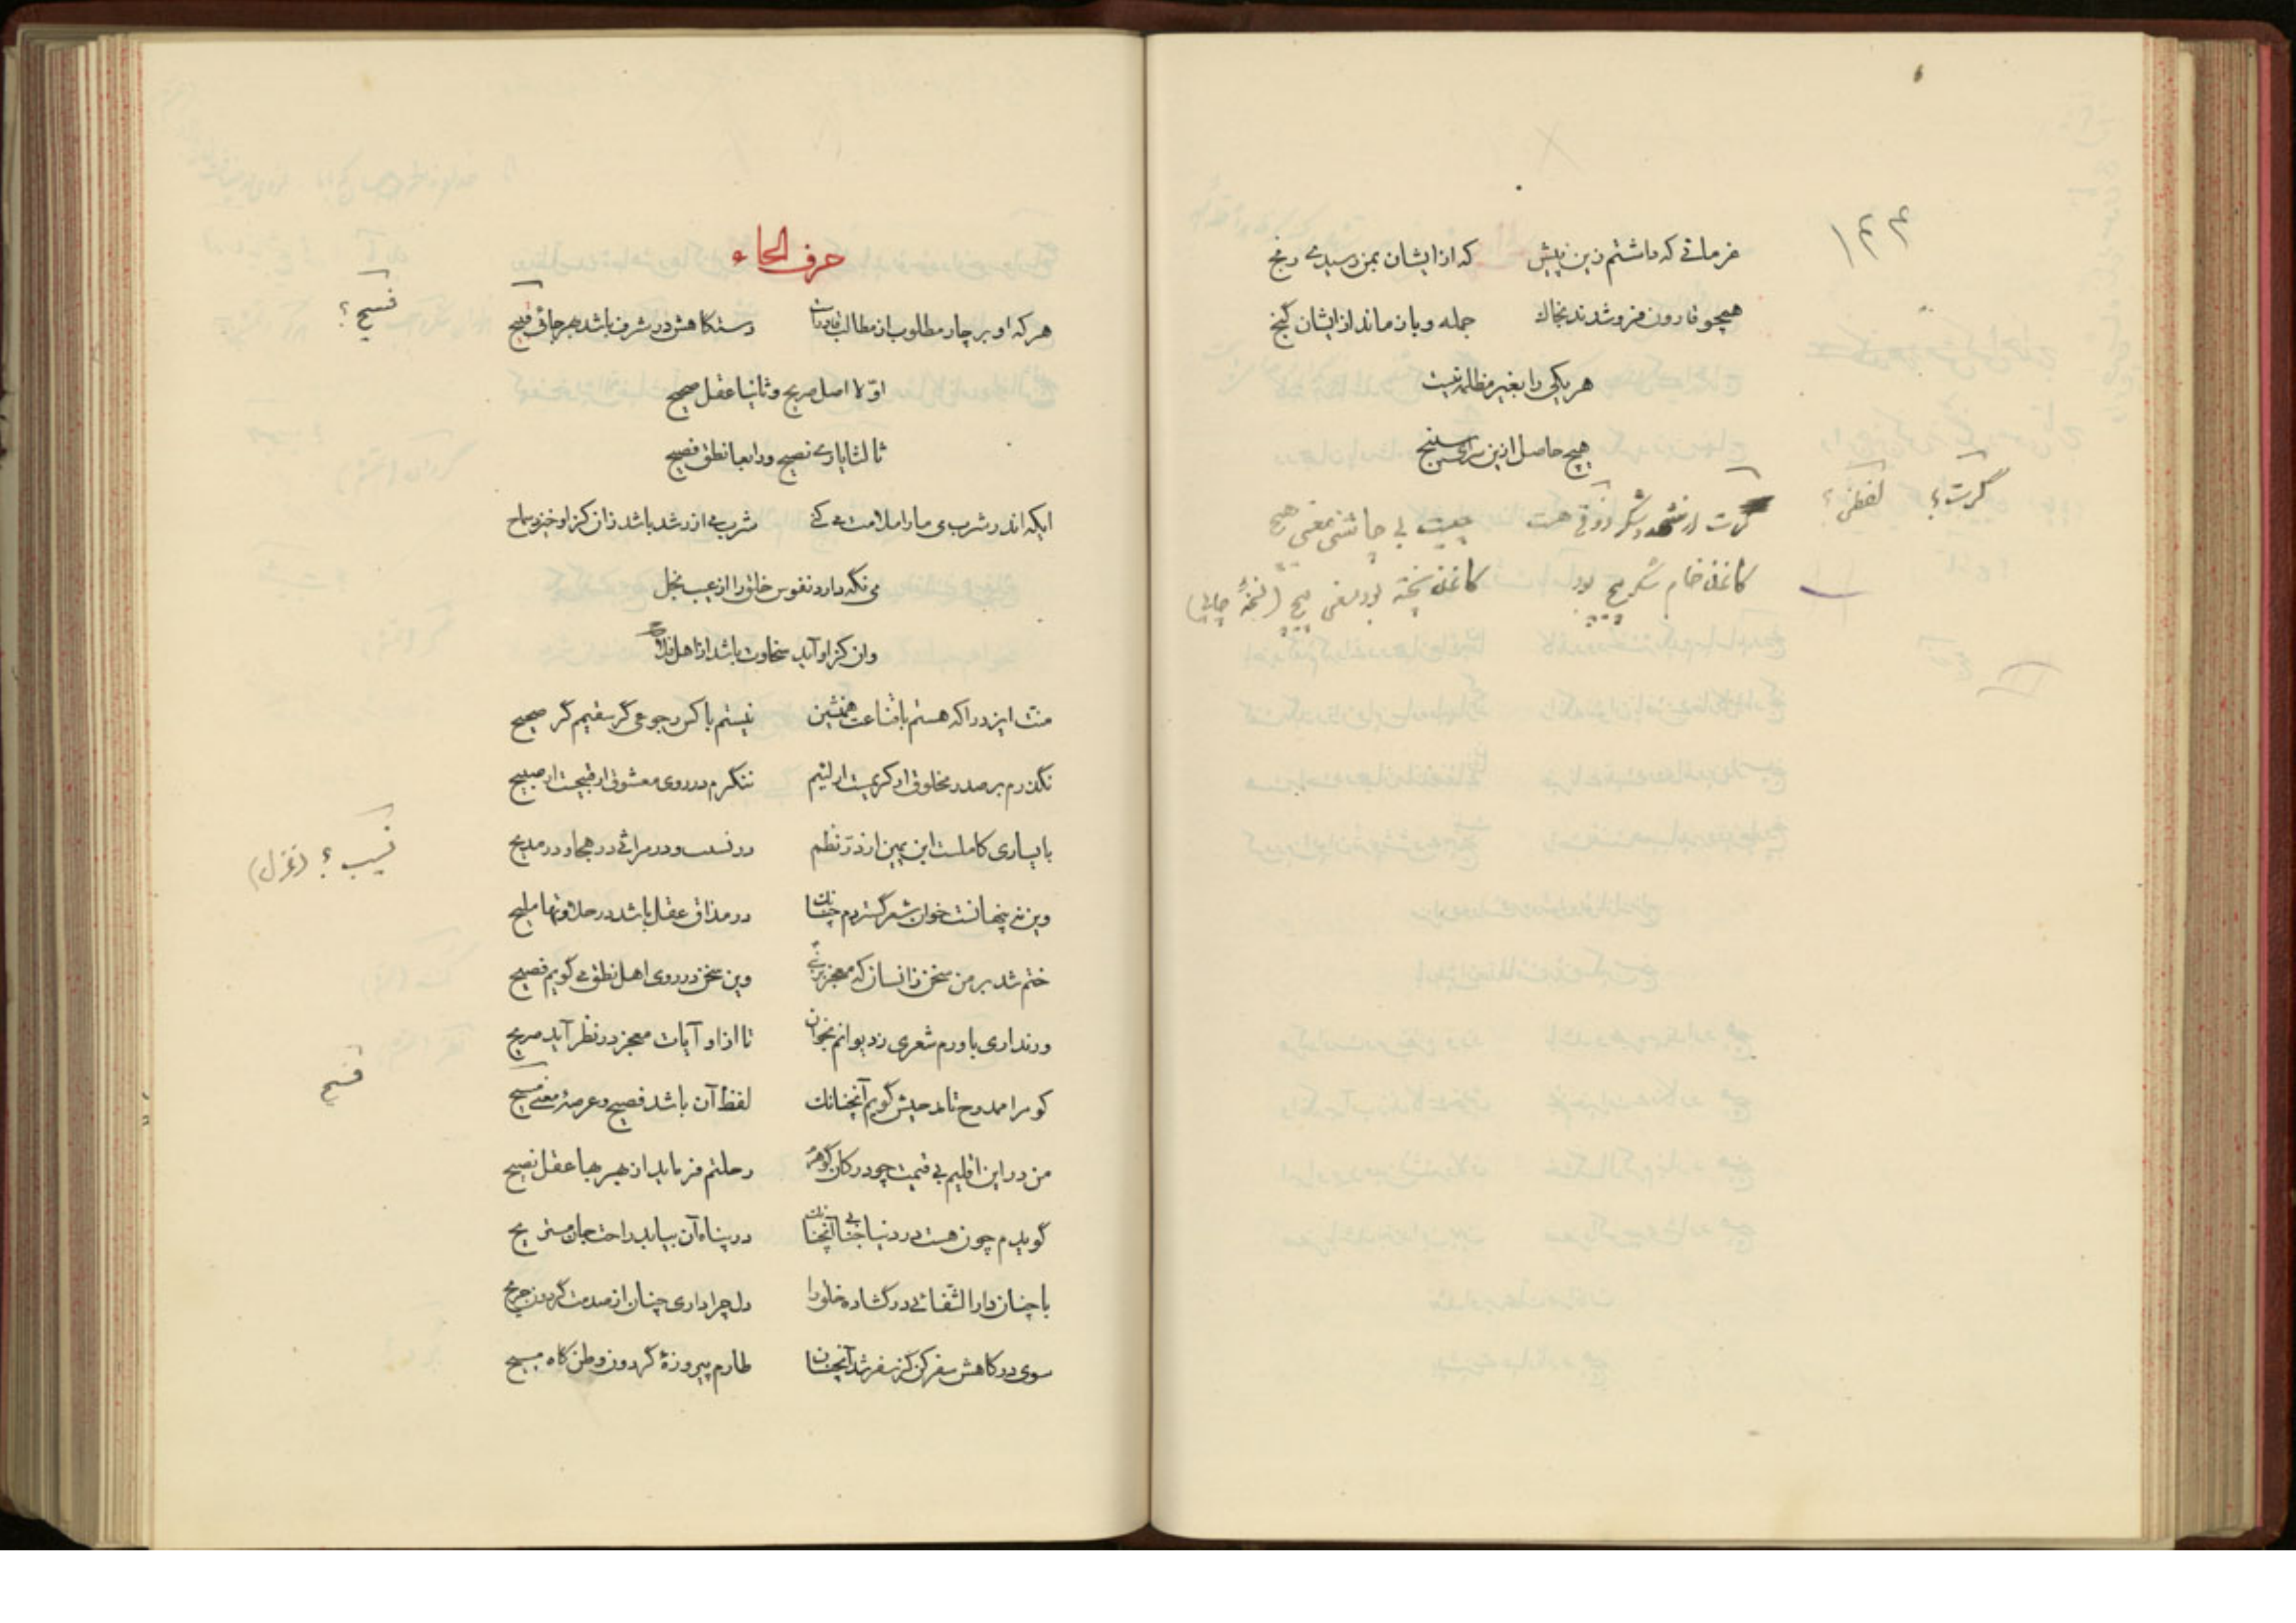 ۱۴۴
غرمائی که داشتم زین پیش که از ایشان بمن رسیدی رنج
همچو قارون فرو شدند بخاک جمله و باز ماند از ایشان گنج
هر یکی را بغیر مظلمه نیست
هیچ حاصل ازین سرای سپنج
گرت؟ لفظی؟
گرت از شهد و شکر ذوقی هست چیست بی چاشنی معنی هیچ
کاغذ خام شکر پیچ بود کاغذ پخته بود معنی پیچ (نسخهٔ چاپی)
حرف الحاء
فسیح؟
هر که او بر چار مطلوب از مطالب قادر است دستگاهش در شرف باشد بهر جائی فسیح
اوّلا اصل صریح و ثانیا عقل صحیح
ثالثا یاری نصیح و رابعا نطق فصیح
ایکه اندر شرب می ما را ملامت می کنی شرب می از رشد باشد زان کزاو خیزد سماح
می نگه دارد نفوس خلق را از عیب بخل
وان کزاو آید سخاوت باشد از اهل فلاح
منت ایزد را که هستم با قناعت همنشین نیستم با کس رجوعی گر سقیم گر صحیح
نگذرم بر صدر مخلوقی ار کریمست ار لئیم ننگرم در روی معشوقی ار قبیحست ار صبیح
نسیب؟ (غزل)
با یساری کاملست ابن یمین از درّ نظم در نسیب و در مراثی در هجا و در مدیح
وین نه پنهانست خوان شعر گستردم چنانک در مذاق عقل باشد در حلاوتها ملیح
ختم شد بر من سخن زانسان که معجز بر نبی وین سخن در روی اهل نطق می گویم فصیح
ور نداری باورم شعری ز دیوانم بخوان تا از او آیات معجز در نظر آید صریح
فسیح
کو مرا ممدوح تا مدحیش گویم آنچنانک لفظ آن باشد فصیح و عرصهٔ معنی فسیح
من در این اقلیم بی قیمت چو در کان گوهرم رحلتم فرماید از بهر بها عقل نصیح
گویدم چون هست در دنیا جنابی آنچنانک در پناه آن بیابد راحت جان مستریح
با چنان دار الشفائی در گشاده خلق را دل چرا داری چنان از صدمت گردون جریح
سوی درگاهش سفر کن کز سفر شد آنچنان طارم پیروزهٔ گردون وطن گاه مسیح